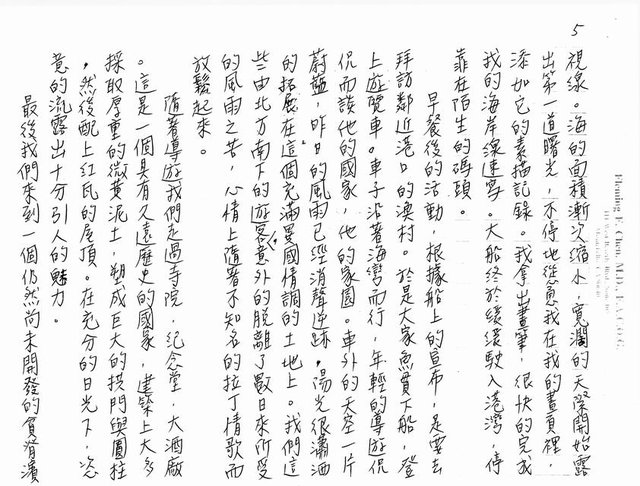 5
Fleming E. Chen, M.D., F.A.C.O.G.
視線。海的面積漸次縮小,寬濶的天際開始露
出第一道曙光,不停地慫恿我在我的畫頁裡,
添加它的素描記錄。我拿出畫筆,很快的完成
我的海岸線速寫。大船終於緩緩駛入港灣,停
靠在陌生的碼頭。
早餐後的活動,根據船上的宣布,是要去
拜訪鄰近港口的漁村。於是大家魚貫下船,登
上遊覽車。車子沿著海灣而行,年輕的導遊侃
侃而談他的國家,他的家園。車外的天空一片
蔚藍,昨日的風雨已經消聲逆跡,陽光很瀟洒
的拓展在這個充滿異國情調的土地上。我們這
些由北方南下的遊客,意外的脱離了數日來所受
的風雨之苦,心情上隨著不知名的拉丁情歌而
放鬆起來。
隨著導遊我們走過寺院,紀念堂,大酒廠
。這是一個具有久遠歷史的國家,建築上大多
採取厚重的微黃泥土,塑成巨大的拱門與圓柱
,然後配上紅瓦的屋頂。在充分的日光下,恣
意的流露出十分引人的魅力。
最後我們來到一個仍然尚未開發的貧脊濱